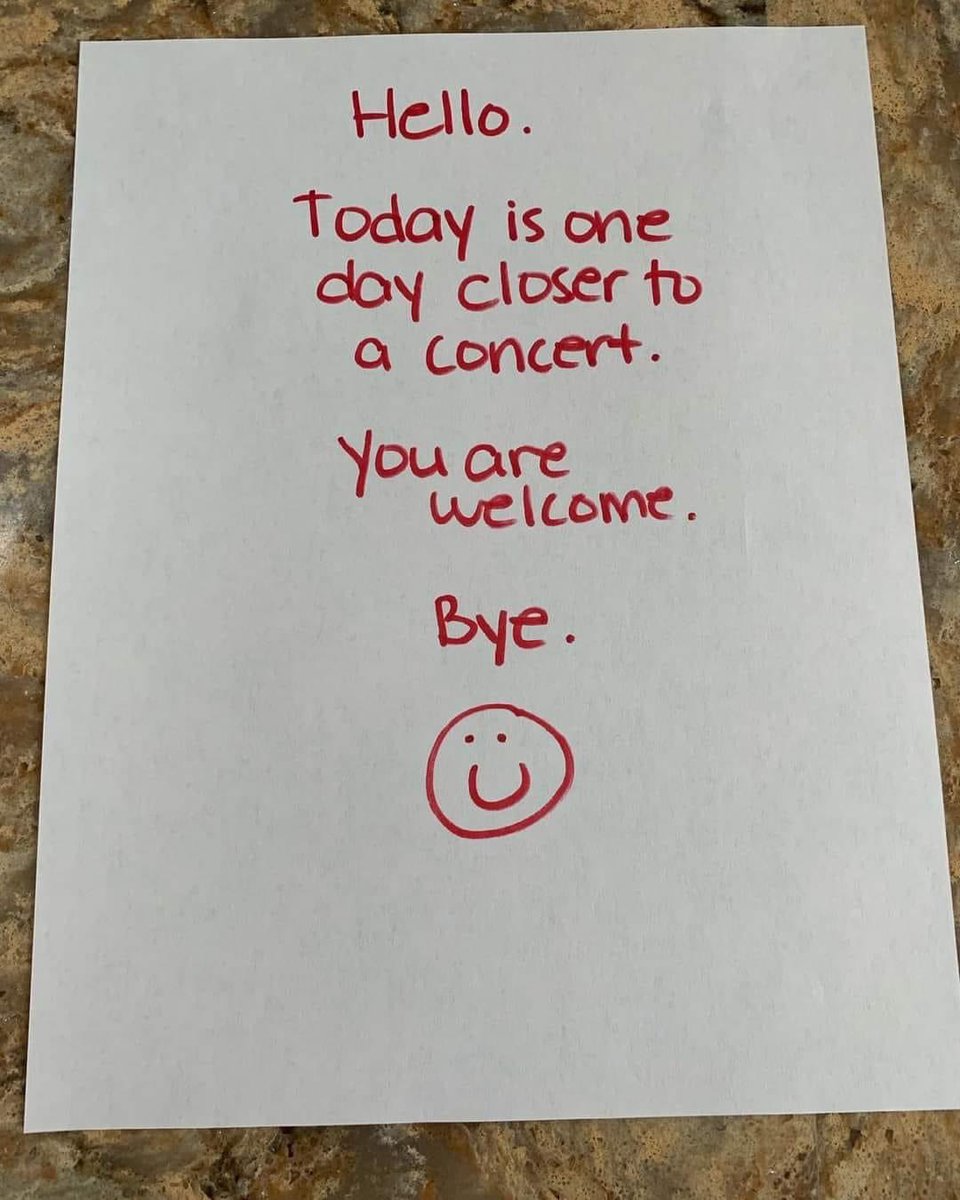 Hello.
Today is one
day closer to
a concert.
You are
welcome.
Bye.